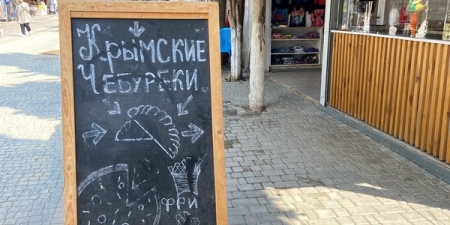 Крымские
Чебуреки
фри